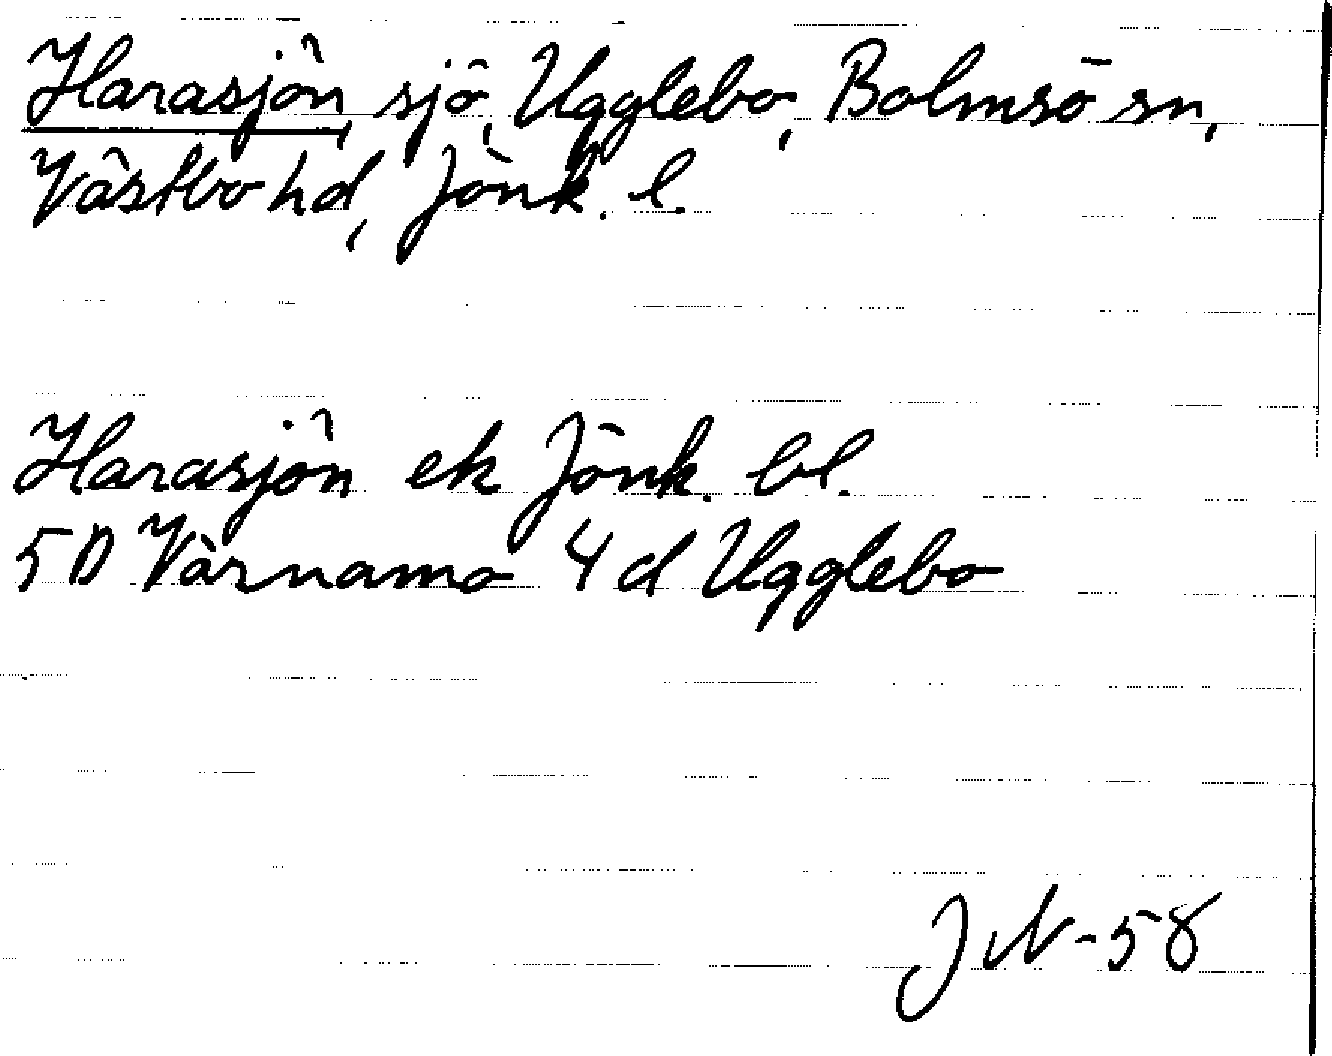 Harasjön, sjö, Ugglebo, Bolmsö sn,
Västbo hd, Jönk. l.
Harasjön ek Jönk. bl.
5D Värnamo 4d Ugglebo
JN-58